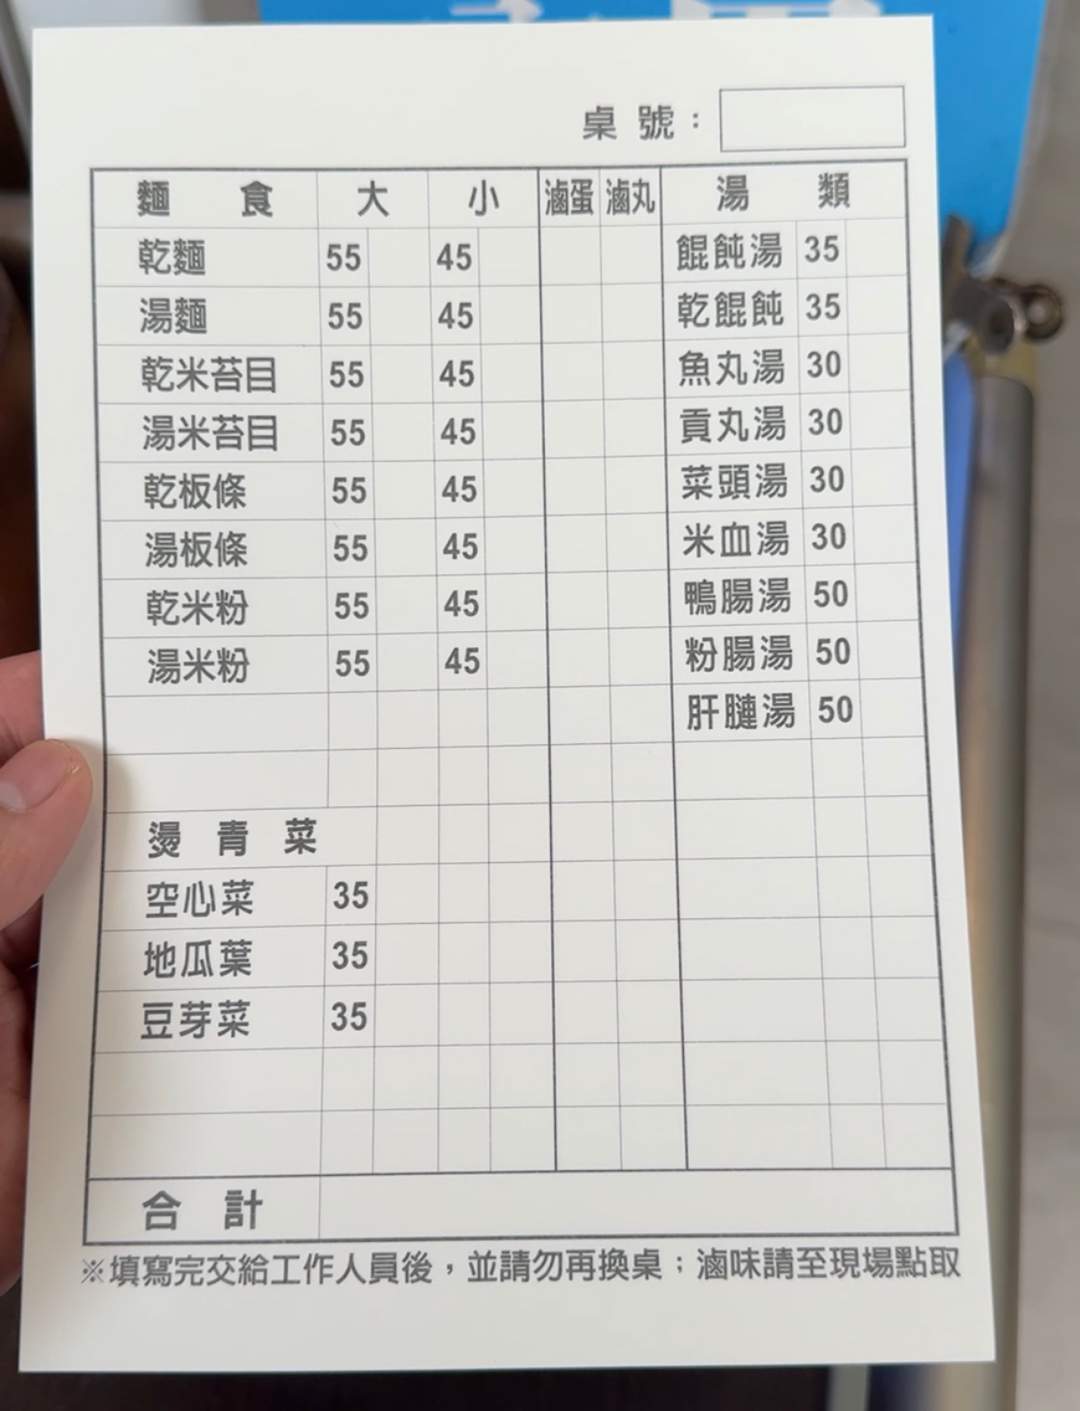 桌號：
麵食 大 小 滷蛋 滷丸 湯類
乾麵 55 45 餛飩湯 35
湯麵 55 45 乾餛飩 35
乾米苔目 55 45 魚丸湯 30
湯米苔目 55 45 貢丸湯 30
乾板條 55 45 菜頭湯 30
湯板條 55 45 米血湯 30
乾米粉 55 45 鴨腸湯 50
湯米粉 55 45 粉腸湯 50
肝膤湯 50
燙青菜
空心菜 35
地瓜葉 35
豆芽菜 35
合計
※填寫完交給工作人員後，並請勿再換桌；滷味請至現場點取